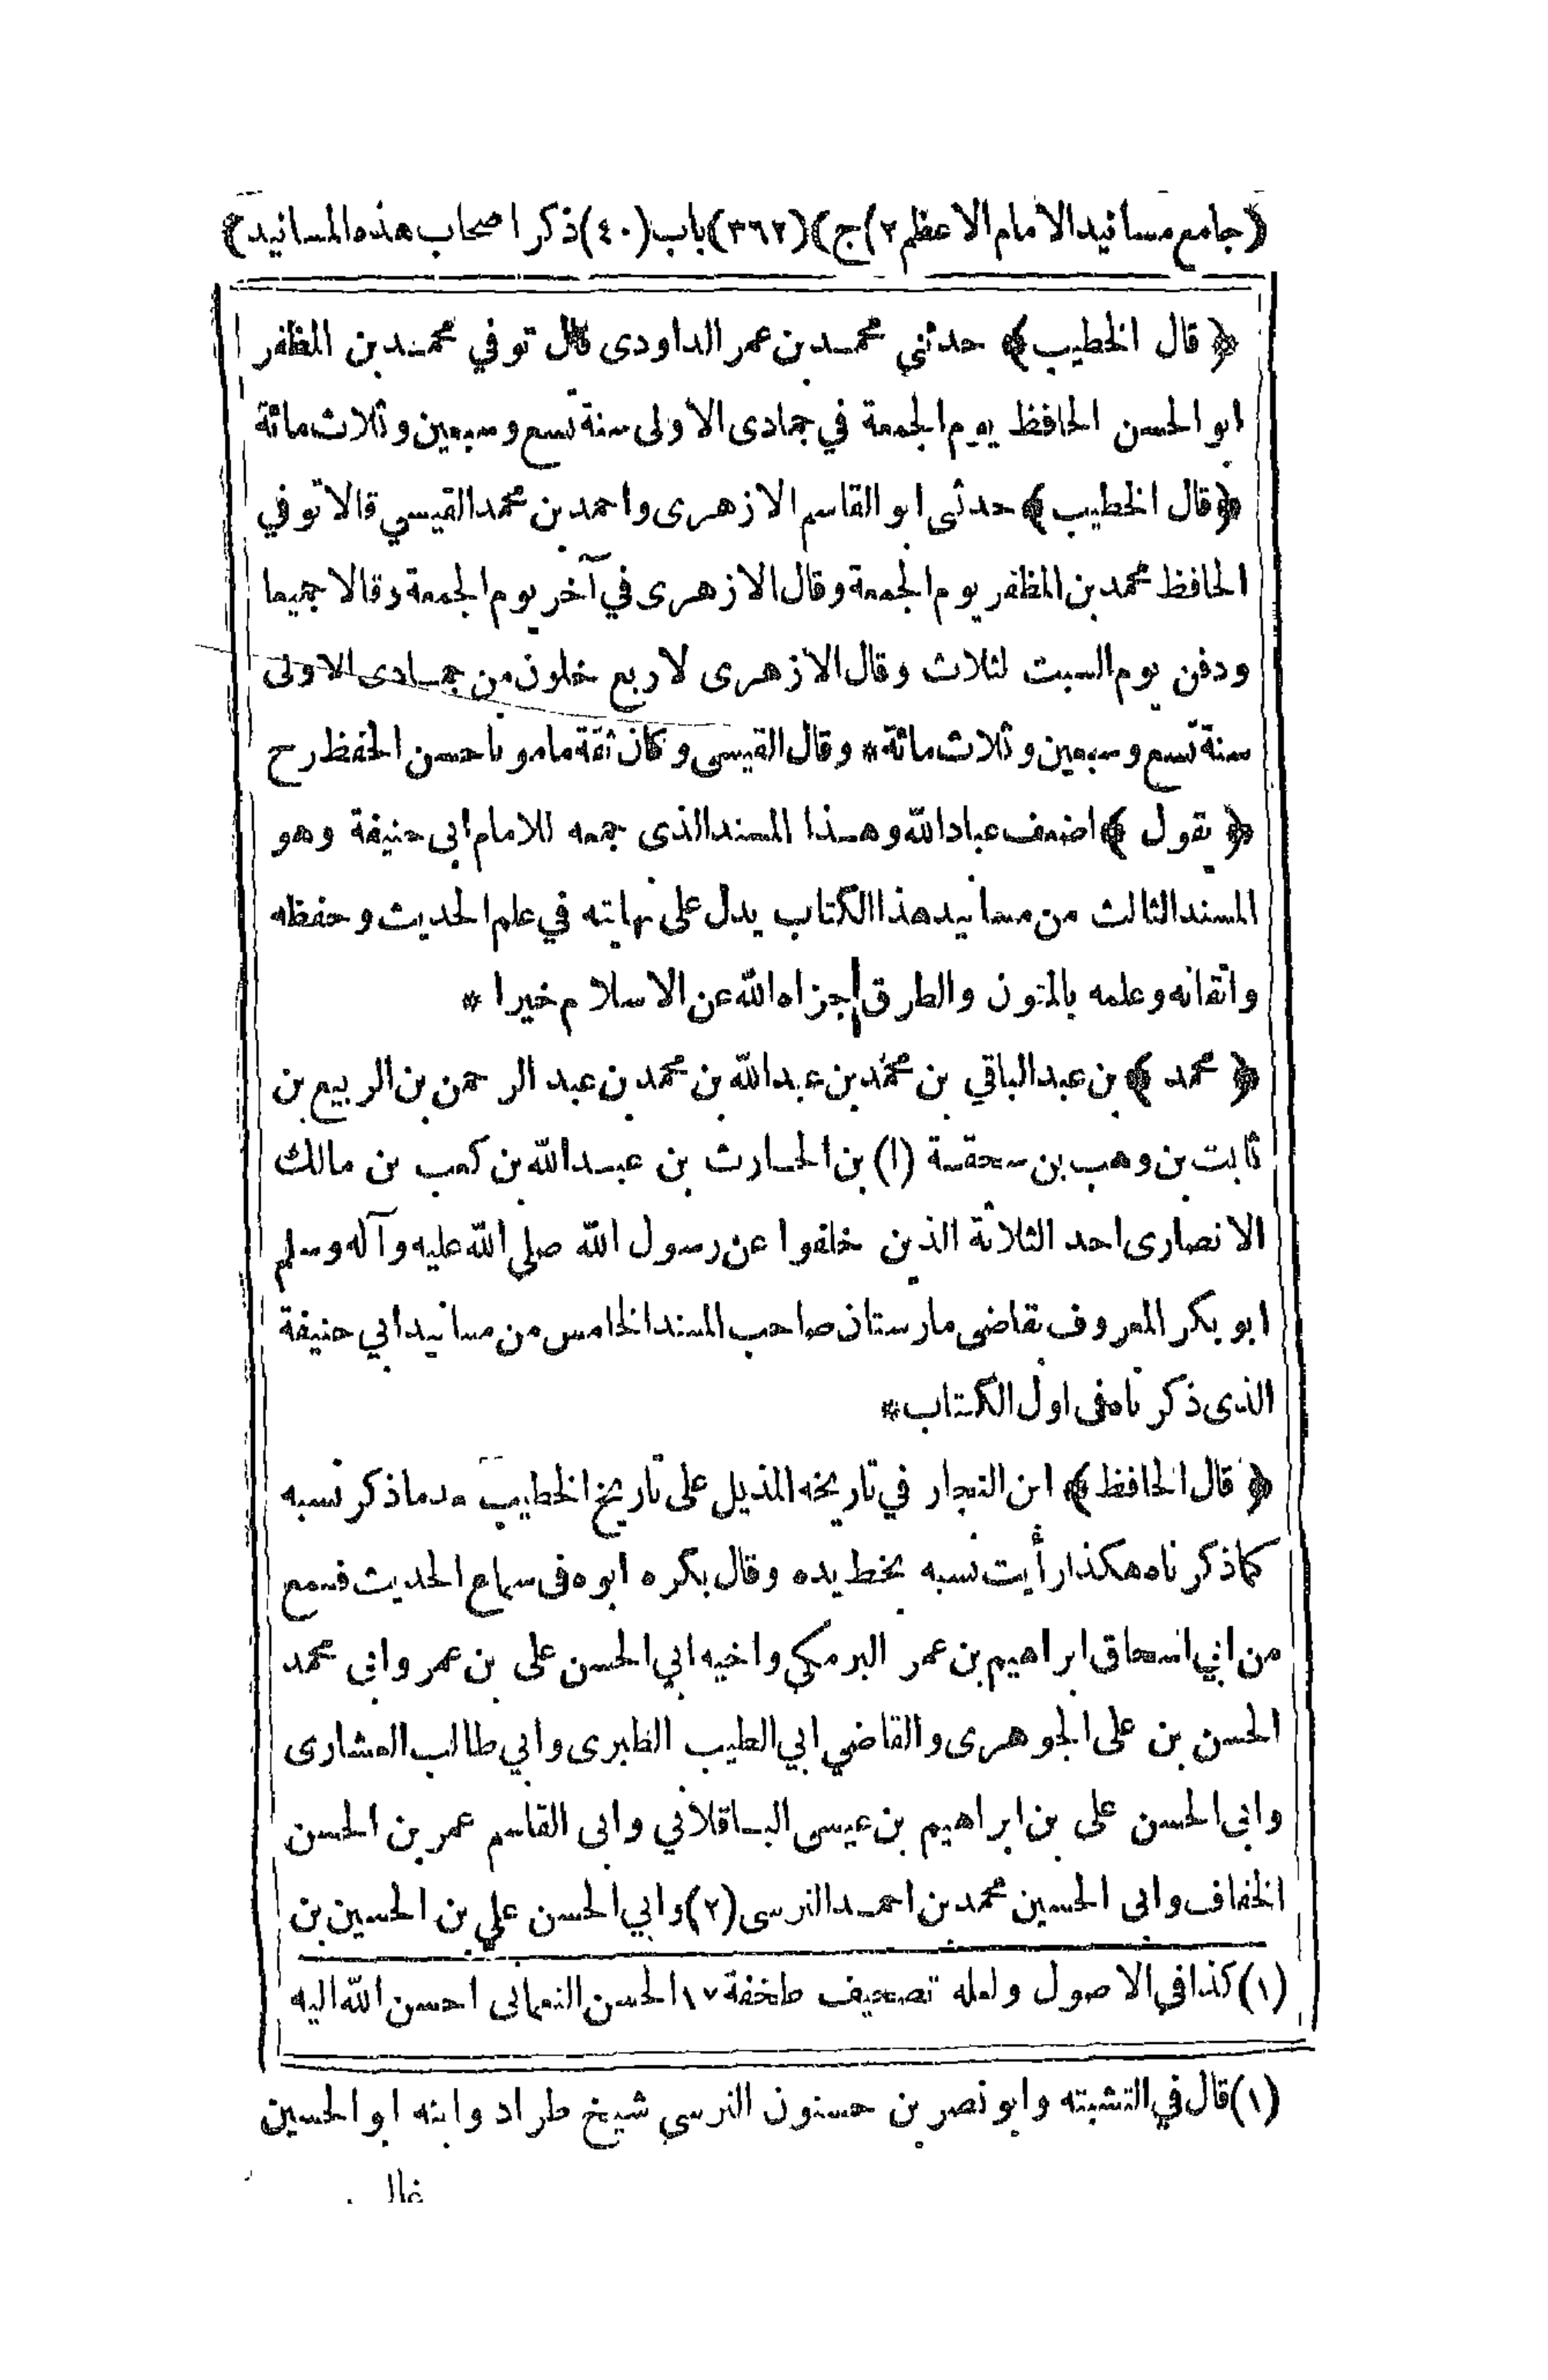 ﴿جامع مسانيد الامام الاعظم ٢) ج) (٣٦٢) باب (٤٠) ذكر اصحاب هذه المسانيد﴾
﴿ قال الخطيب ﴾ حدثني محمد بن عمر الداودى قال توفي محمد بن المظفر
ابو الحسن الحافظ يوم الجمعة في جمادى الاولى سنة تسع وسبعين وثلاث مائة
﴿ قال الخطيب ﴾ حدثى ابو القاسم الازهرى واحمد بن محمد القيسي قالا توفي
الحافظ محمد بن المظفر يوم الجمعة وقال الازهرى في آخر يوم الجمعة وقالا جميعا
ودفن يوم السبت لثلاث وقال الازهرى لاربع خلون من جمادى الاولى
سنة تسع وسبعين وثلاث مائة * وقال القيسى وكان ثقة مامونا حسن الحفظ رح
﴿ يقول ﴾ اضعف عباد الله وهذا المسند الذى جمعه للامام ابى حنيفة وهو
المسند الثالث من مسانيد هذا الكتاب يدل على نهايته في علم الحديث وحفظه
واتقانه وعلمه بالمتون والطرق جزاه الله عن الاسلام خيرا *
﴿ محمد ﴾ بن عبد الباقي بن محمد بن عبد الله بن محمد بن عبد الرحمن بن الربيع بن
ثابت بن وهب بن سحقة (١) بن الحارث بن عبد الله بن كعب بن مالك
الانصارى احد الثلاثة الذين خلفوا عن رسول الله صلى الله عليه وآله وسلم
ابو بكر المعروف بقاضى مارستان صاحب المسند الخامس من مسانيد ابي حنيفة
الذى ذكرناه فى اول الكتاب *
﴿ قال الحافظ ﴾ ابن النجار في تاريخه المذيل على تاريخ الخطيب بعد ما ذكر نسبه
كما ذكرناه هكذا رأيت نسبه بخط يده وقال بكره ابوه فى سماع الحديث فسمع
من ابي اسحاق ابراهيم بن عمر البرمكي واخيه ابي الحسن على بن عمر وابى محمد
الحسن بن على الجوهرى والقاضي ابي الطيب الطبرى وابي طالب العشارى
وابى الحسن على بن ابراهيم بن عيسى الباقلاني وابى القاسم عمر بن الحسن
الخفاف وابى الحسين محمد بن احمد النرسى (٢) وابي الحسن علي بن الحسين بن
(١) كذا في الاصول ولعله تصحيف طخفة ١٧ الحسن النعمانى احسن الله اليه
(١) قال في التشبته وابو نصر بن حسنون النرسي شيخ طراد وابنه ابو الحسين